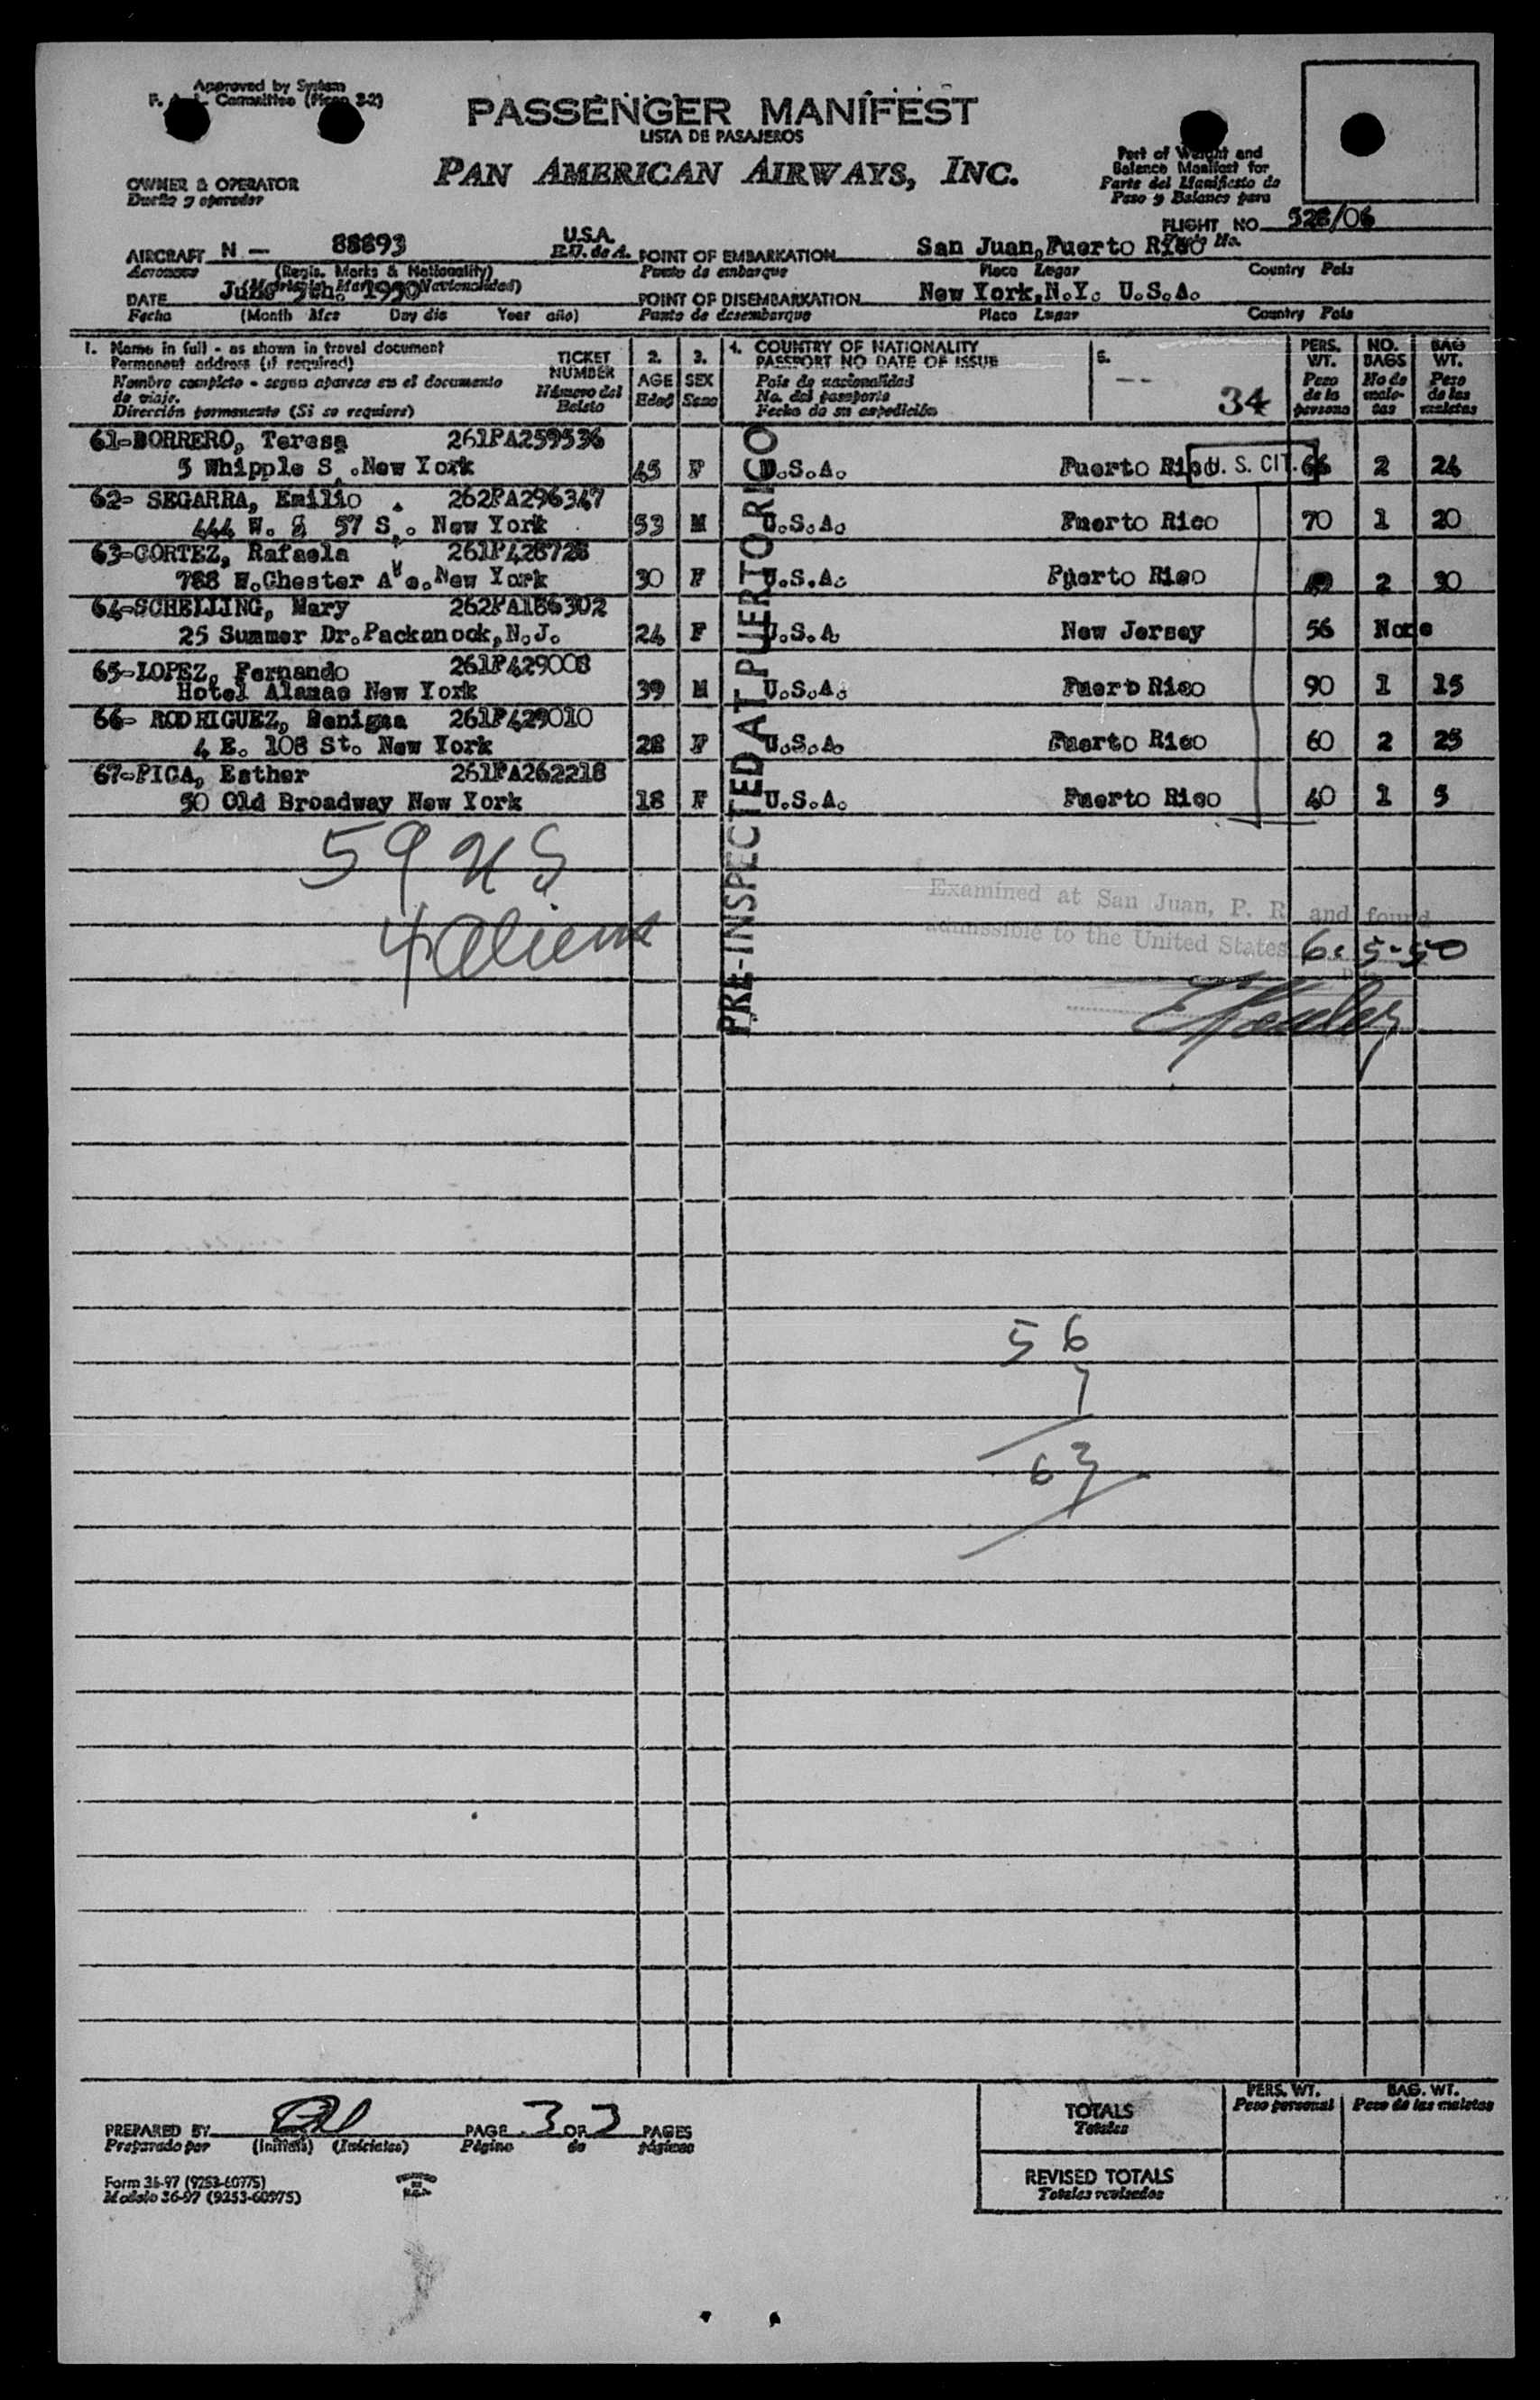 Approved by System
F. & L. Committee (Form 3-2)
PASSENGER MANIFEST
LISTA DE PASAJEROS
PAN AMERICAN AIRWAYS, INC.
OWNER & OPERATOR
Dueño y operador
Part of Weight and
Balance Manifest for
Parte del Manifiesto de
Peso y Balance para
FLIGHT NO. 526/06
Vuelo No.
AIRCRAFT N - 88893 U.S.A. POINT OF EMBARKATION San Juan, Puerto Rico
Aeronave (Regis. Marks & Nationality) E.U. de A. Punto de embarque Place Lugar Country País
DATE June 5th. 1950 POINT OF DISEMBARKATION New York, N.Y. U.S.A.
Fecha (Month Mes Day día Year año) Punto de desembarque Place Lugar Country País
1. Name in full - as shown in travel document
Permanent address (if required)
Nombre completo - segun aparece en el documento
de viaje.
Dirección permanente (Si se requiere)
TICKET
NUMBER
Número del
Boleto
2.
AGE
Edad
3.
SEX
Sexo
4. COUNTRY OF NATIONALITY
PASSPORT NO DATE OF ISSUE
País de nacionalidad
No. del pasaporte
Fecha de su expedición
5.
--
34
PERS.
WT.
Peso
de la
persona
NO.
BAGS
No de
male-
tas
BAG
WT.
Peso
de las
maletas
61-BORRERO, Teresa 261PA259536
5 Whipple S .New York 45 F U.S.A. Puerto Rico U. S. CIT. 66 2 24
62- SEGARRA, Emilio . 262PA296347
444 W. & 57 S . New York 53 M U.S.A. Puerto Rico 70 1 20
63-CORTEZ, Rafaela 261P428728
788 W.Chester Ave.New York 30 F U.S.A. Puerto Rico 2 30
64-SCHELLING, Mary 262PA186302
25 Summer Dr.Packanock,N.J. 24 F U.S.A New Jersey 56 None
65-LOPEZ, Fernando 261P429008
Hotel Alamac New York 39 M U.S.A. Puerto Rico 90 1 15
66- RODRIGUEZ, Benigna 261P429010
4 E. 108 St. New York 28 F U.S.A. Puerto Rico 60 2 25
67-PICA, Esther 261PA262218
50 Old Broadway New York 18 F U.S.A. Puerto Rico 40 1 5
PRE-INSPECTED AT PUERTO RICO
59 US
4 aliens
Examined at San Juan, P. R. and found
admissible to the United States 6-5-50
56
7
63
PREPARED BY PAGE 3 OF 3 PAGES
Preparado por (Initials) (Iniciales) Página de páginas
Form 36-97 (9253-60775)
Modelo 36-97 (9253-60775)
PERS. WT.
Peso personal
BAG. WT.
Peso de las maletas
TOTALS
Totales
REVISED TOTALS
Totales revisados